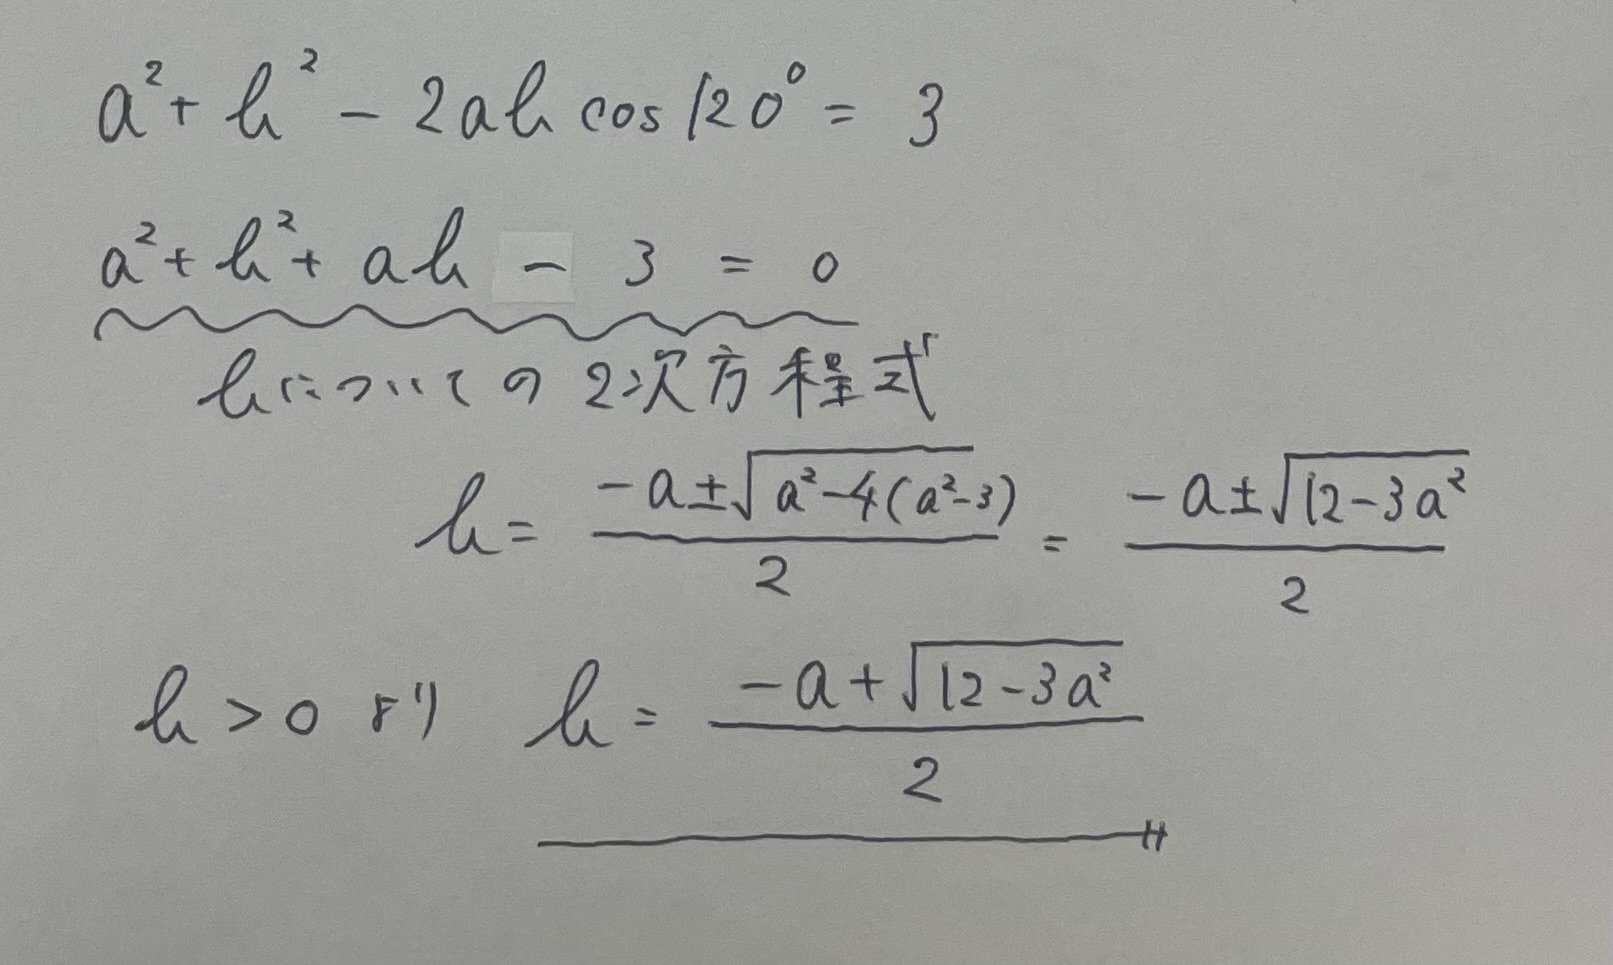 a² + h² - 2ah cos 120° = 3
a² + h² + ah - 3 = 0
hについての2次方程式
h = (-a ± √(a² - 4(a² - 3)))/2 = (-a ± √(12 - 3a²))/2
h > 0 より h = (-a + √(12 - 3a²))/2